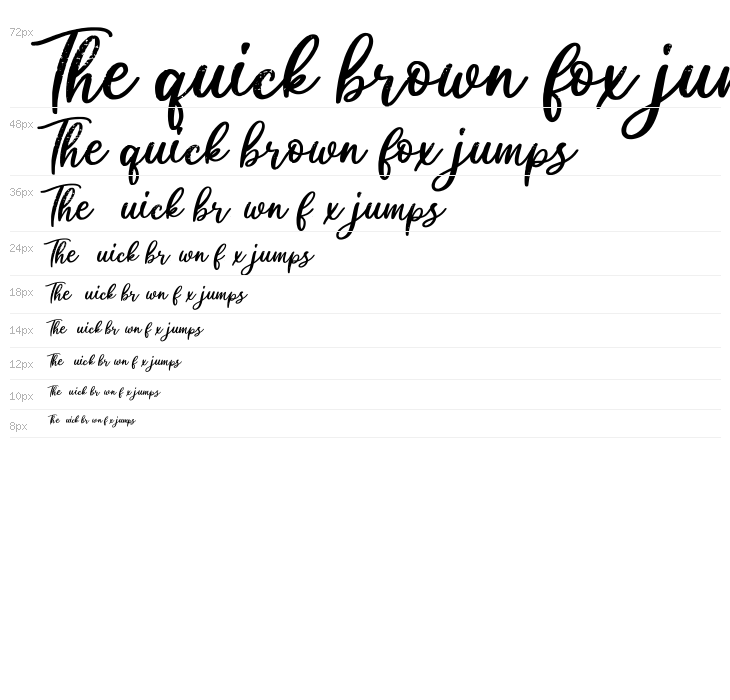 72px The quick brown fox jum
48px The quick brown fox jumps
36px The uick br wn f x jumps
24px The uick br wn f x jumps
18px The uick br wn f x jumps
14px The uick br wn f x jumps
12px The uick br wn f x jumps
10px The uick br wn f x jumps
8px The uick br wn f x jumps